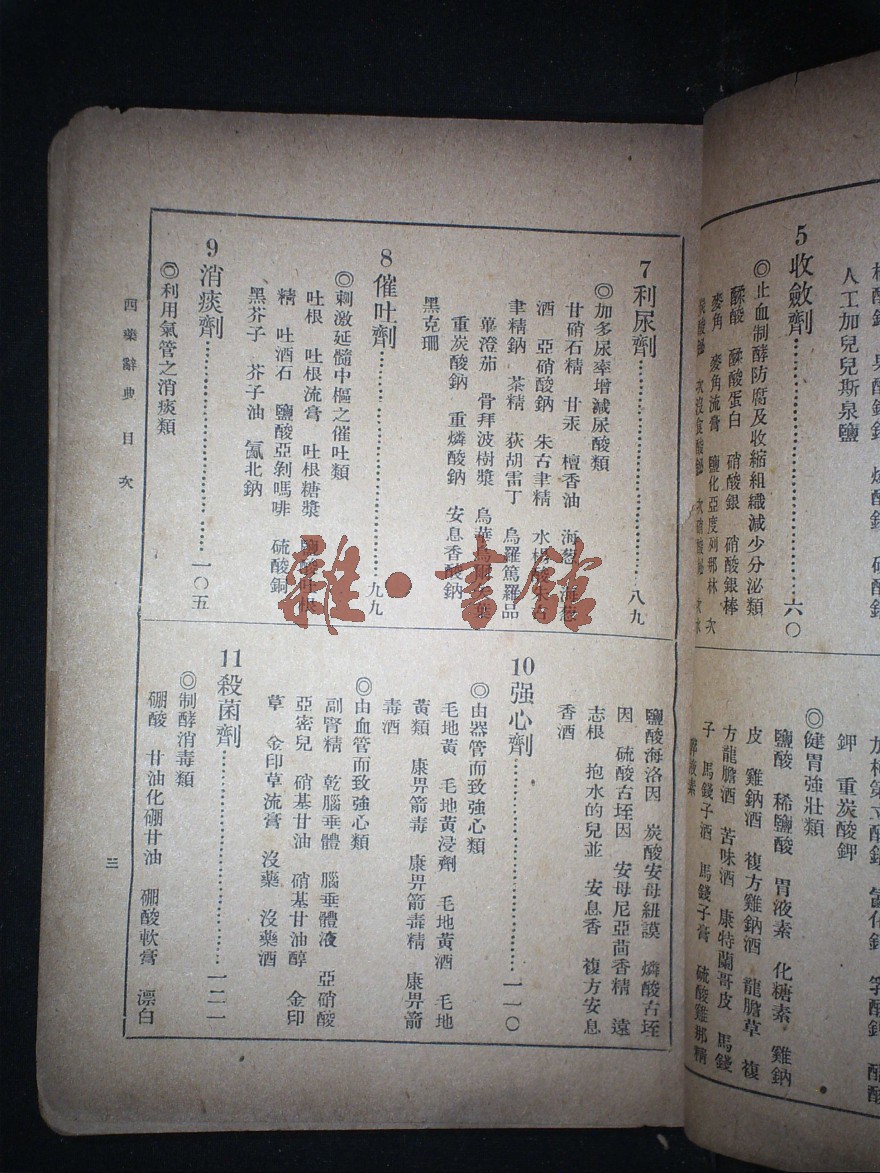 酸鉍
人工加兒兒斯泉鹽
5 收斂劑…………六〇
◎止血制酵防腐及收縮組織減少分泌類
醛酸 醛酸蛋白 硝酸銀 硝酸銀棒
麥角 麥角流膏 鹽化亞度列那林 次
鉀 重炭酸鉀
◎健胃強壯類
鹽酸 稀鹽酸 胃液素 化糖素 雞鈉
皮 雞鈉酒 複方雞鈉酒 龍膽草 複
方龍膽酒 苦味酒 康特蘭哥皮 馬錢
子 馬錢子酒 馬錢子膏 硫酸雞那精
7 利尿劑…………八九
◎加多尿率增減尿酸類
甘硝石精 甘汞 檀香油 海葱 海葱
酒 亞硝酸鈉 朱古聿精 水楊酸朱古
聿精鈉 茶精 荻胡雷丁 烏羅篤羅品
蓽澄茄 骨拜波樹漿 烏華烏爾矢葉
重炭酸鈉 重燐酸鈉 安息香酸鈉
黑克珊
8 催吐劑…………九九
◎刺激延髓中樞之催吐類
吐根 吐根流膏 吐根糖漿 鹽酸吐根
精 吐酒石 鹽酸亞剝嗎啡 硫酸銅
黑芥子 芥子油 氤北鈉
9 消痰劑…………一〇五
◎利用氣管之消痰類
鹽酸海洛因 炭酸安母紐謨 燐酸古垤
因 硫酸古垤因 安母尼亞茴香精 遠
志根 抱水的兒並 安息香 複方安息
香酒
10 强心劑…………一一〇
◎由器管而致強心類
毛地黃 毛地黃浸劑 毛地黃酒 毛地
黃類 康畀箭毒 康畀箭毒精 康畀箭
毒酒
◎由血管而致強心類
副腎精 乾腦垂體 腦垂體液 亞硝酸
亞密兒 硝基甘油 硝基甘油醇 金印
草 金印草流膏 沒藥 沒藥酒
11 殺菌劑…………一二一
◎制酵消毒類
硼酸 甘油化硼甘油 硼酸軟膏 漂白
西藥辭典 目次
三
雜·書館